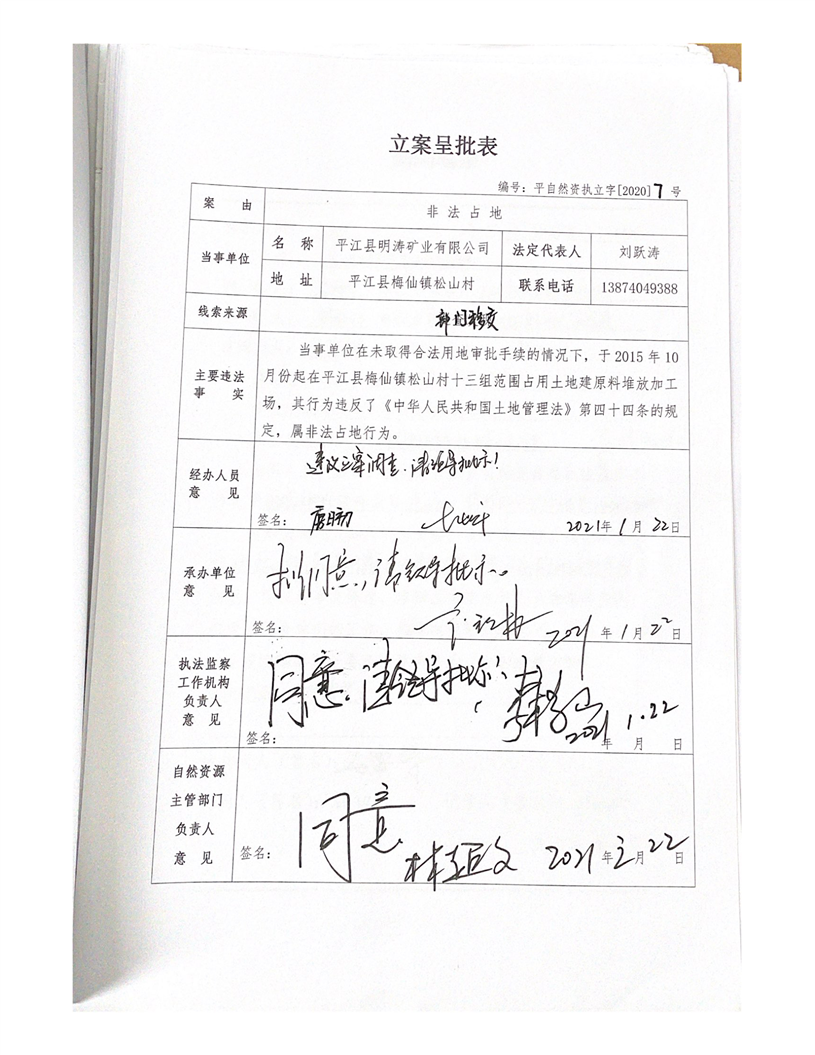 立案呈批表
编号：平自然资执立字[2020]7号
案 由 非法占地
当事单位 名 称 平江县明涛矿业有限公司 法定代表人 刘跃涛
地 址 平江县梅仙镇松山村 联系电话 13874049388
线索来源 部门移交
主要违法
事 实
当事单位在未取得合法用地审批手续的情况下，于2015年10
月份起在平江县梅仙镇松山村十三组范围占用土地建原料堆放加工
场，其行为违反了《中华人民共和国土地管理法》第四十四条的规
定，属非法占地行为。
经办人员
意 见
建议立案调查，请领导批示！
签名： 2021年1月22日
承办单位
意 见
拟同意，请领导批示。
签名： 2021年1月22日
执法监察
工作机构
负责人
意 见
同意。请领导批示！
签名： 2021年1.22月 日
自然资源
主管部门
负责人
意 见
同意
签名： 2021年2月22日